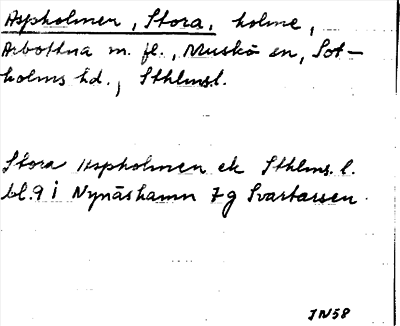 Aspholmen, Stora, holme,
Arbottna m. fl., Muskö sn, Sot-
holms hd., Sthlms l.
Stora Aspholmen ek Sthlms. l.
bl. 9 i Nynäshamn 7g Svartarsen.
JN58